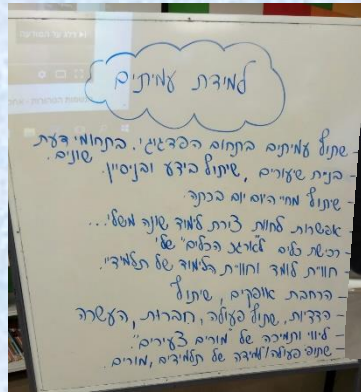 למידת עמיתים
- שתוף עמיתים בתחום הפדגוגי. בתחומי דעת שונים.
- בניית שיעורים, שיתוף בידע ובניסיון.
- שיתוף מחיי היום יום בכתה.
- אפשרות לחוות צורת לימוד שונה משלי...
- רכישת כלים ל"ארגז הכלים" שלי
- חווית לומד וחווית הלימוד של תלמידיי.
- הרחבת אופקים, שיתוף
- הדדיות, שתוף פעולה, חברות, העשרה
- ליווי ותמיכה של מורים צעירים.
- שתופי פעולה/למידה של תלמידים, מורים.